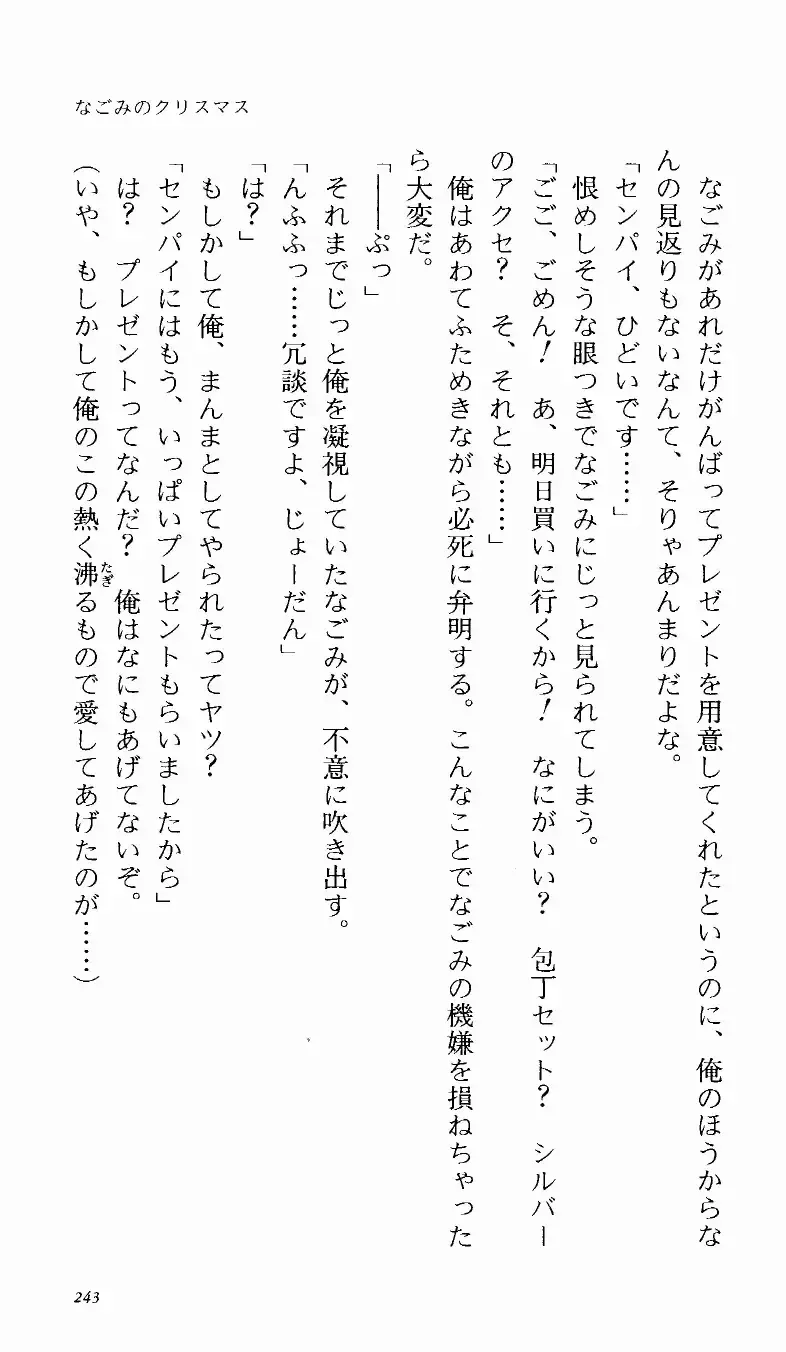 なごみのクリスマス
　なごみがあれだけがんばってプレゼントを用意してくれたというのに、俺のほうからな
んの見返りもないなんて、そりゃあんまりだよな。
「センパイ、ひどいです……」
　恨めしそうな眼つきでなごみにじっと見られてしまう。
「ごご、ごめん！　あ、明日買いに行くから！　なにがいい？　包丁セット？　シルバー
のアクセ？　そ、それとも……」
　俺はあわてふためきながら必死に弁明する。こんなことでなごみの機嫌を損ねちゃった
ら大変だ。
「――ぷっ」
　それまでじっと俺を凝視していたなごみが、不意に吹き出す。
「んふふっ……冗談ですよ、じょーだん」
「は？」
　もしかして俺、まんまとしてやられたってヤツ？
「センパイにはもう、いっぱいプレゼントもらいましたから」
　は？　プレゼントってなんだ？　俺はなにもあげてないぞ。
（いや、もしかして俺のこの熱く沸たぎるもので愛してあげたのが……）
243